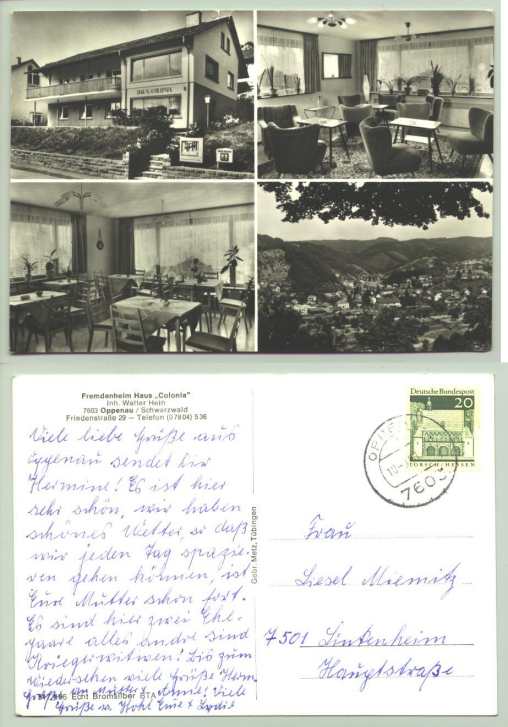 HAUS COLONIA
Fremdenheim Haus „Colonia"
Inh. Walter Hein
7603 Oppenau / Schwarzwald
Friedenstraße 29 – Telefon (07804) 536
Deutsche Bundespost
20
LORSCH/HESSEN
7603
Viele liebe Grüße aus
Oppenau sendet dir
Hermine! Es ist hier
sehr schön, wir haben
schönes Wetter, so daß
wir jeden Tag spazie-
ren gehen können, ist
Eure Mutter schon fort.
Es sind hier zwei Ehe-
paare alles andre sind
Kriegerwitwen! Bis zum
wiedersehen viele Grüße Herm
Grüße an Mutter Viele
Grüße v.
Echt Bromsilber
Gebr. Metz, Tübingen
Frau
Liesel Miemitz
7501 Linkenheim
Hauptstraße